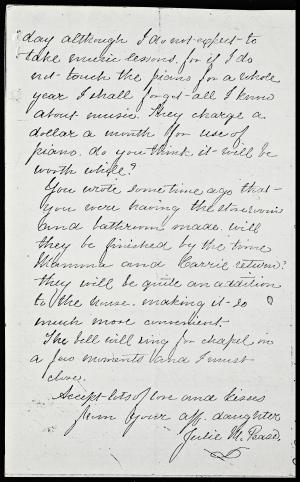 day although I do not expect to
take music lessons. for if I do
not touch the piano for a whole
year I shall forget all I know
about music. They charge a
dollar a month for use of
piano. do you think it will be
worth while?
You wrote sometime ago that
you were having the storeroom
and bathroom made. will
they be finished by the time
Mamma and Carrie return?
they will be quite an addition
to the house. making it so
much more convenient.
The bell will ring for chapel in
a few moments and I must
close.
Accept lots of love and kisses
from your aff. daughter
Julie M. Pease